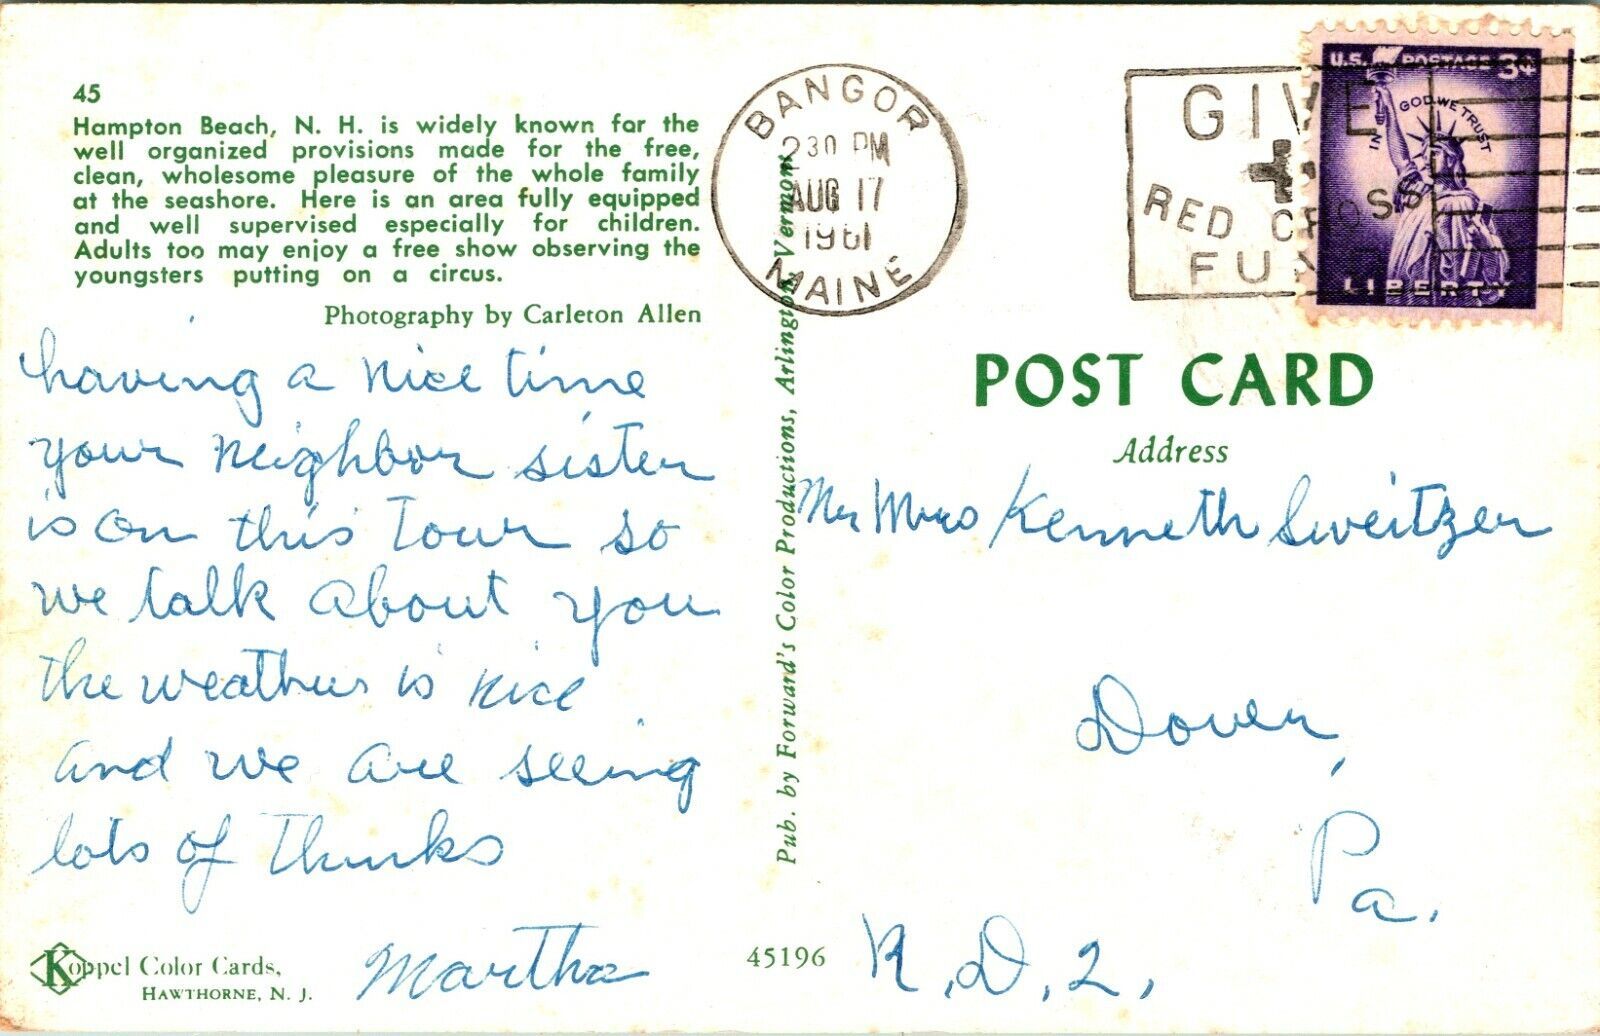 45
Hampton Beach, N. H. is widely known for the
well organized provisions made for the free,
clean, wholesome pleasure of the whole family
at the seashore. Here is an area fully equipped
and well supervised especially for children.
Adults too may enjoy a free show observing the
youngsters putting on a circus.
Photography by Carleton Allen
having a nice time
your neighbor sister
is on this tour so
we talk about you
the weather is nice
and we are seeing
lots of thinks
Martha
Koppel Color Cards,
HAWTHORNE, N. J.
45196
Pub. by Forward's Color Productions, Arlington, Vermont
BANGOR
2 30 PM
AUG 17
1961
MAINE
GIVE
RED CROSS
FUND
U.S. POSTAGE 3¢
IN GOD WE TRUST
LIBERTY
POST CARD
Address
Mr Mrs Kenneth Sweitzer
Dover,
Pa.
R.D.2,